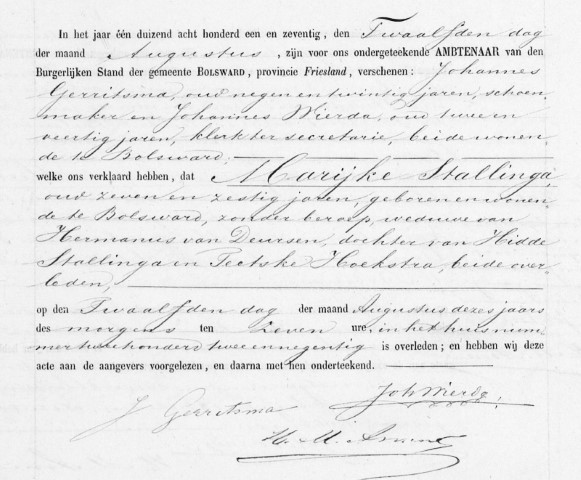 In het jaar één duizend acht honderd een en zeventig, den Twaalfden dag
der maand Augustus, zijn voor ons ondergeteekende AMBTENAAR van den
Burgerlijken Stand der gemeente BOLSWARD, provincie Friesland, verschenen: Johannes
Gerritsma, oud negen en twintig jaren, schoen
maker en Johannes Wierda, oud twee en
veertig jaren, klerk ter secretarie, beide wonen
de te Bolsward,
welke ons verklaard hebben, dat Marijke Stallinga,
oud zeven en zestig jaren, geboren en wonen
de te Bolsward, zonder beroep, weduwe van
Hermanus van Deursen, dochter van Hidde
Stallinga en Teetske Hoekstra, beide over
leden,
op den Twaalfden dag der maand Augustus dezes jaars
des morgens ten Zeven ure, in het huis num
mer twee honderd twee en negentig is overleden; en hebben wij deze
acte aan de aangevers voorgelezen, en daarna met hen onderteekend.
J Gerritsma Joh Wierda
H. M.